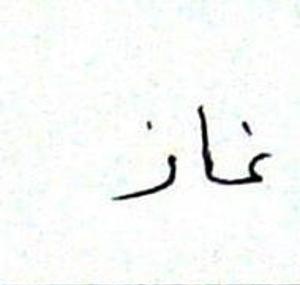 غاز